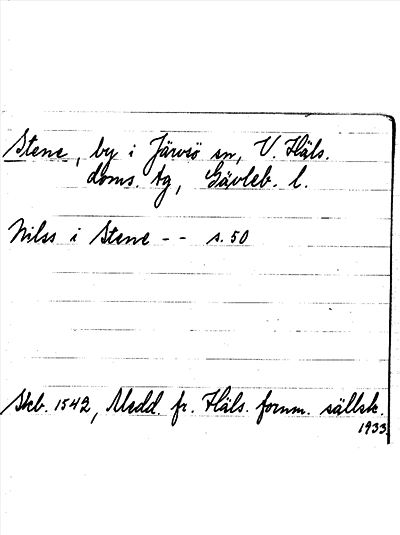 Stene, by i Järvsö sn, V. Häls.
doms. tg, Gävleb. l.
Nilss i Stene - - s. 50
Skb. 1542, Medd. fr. Häls. fornm. sällsk.
1933.